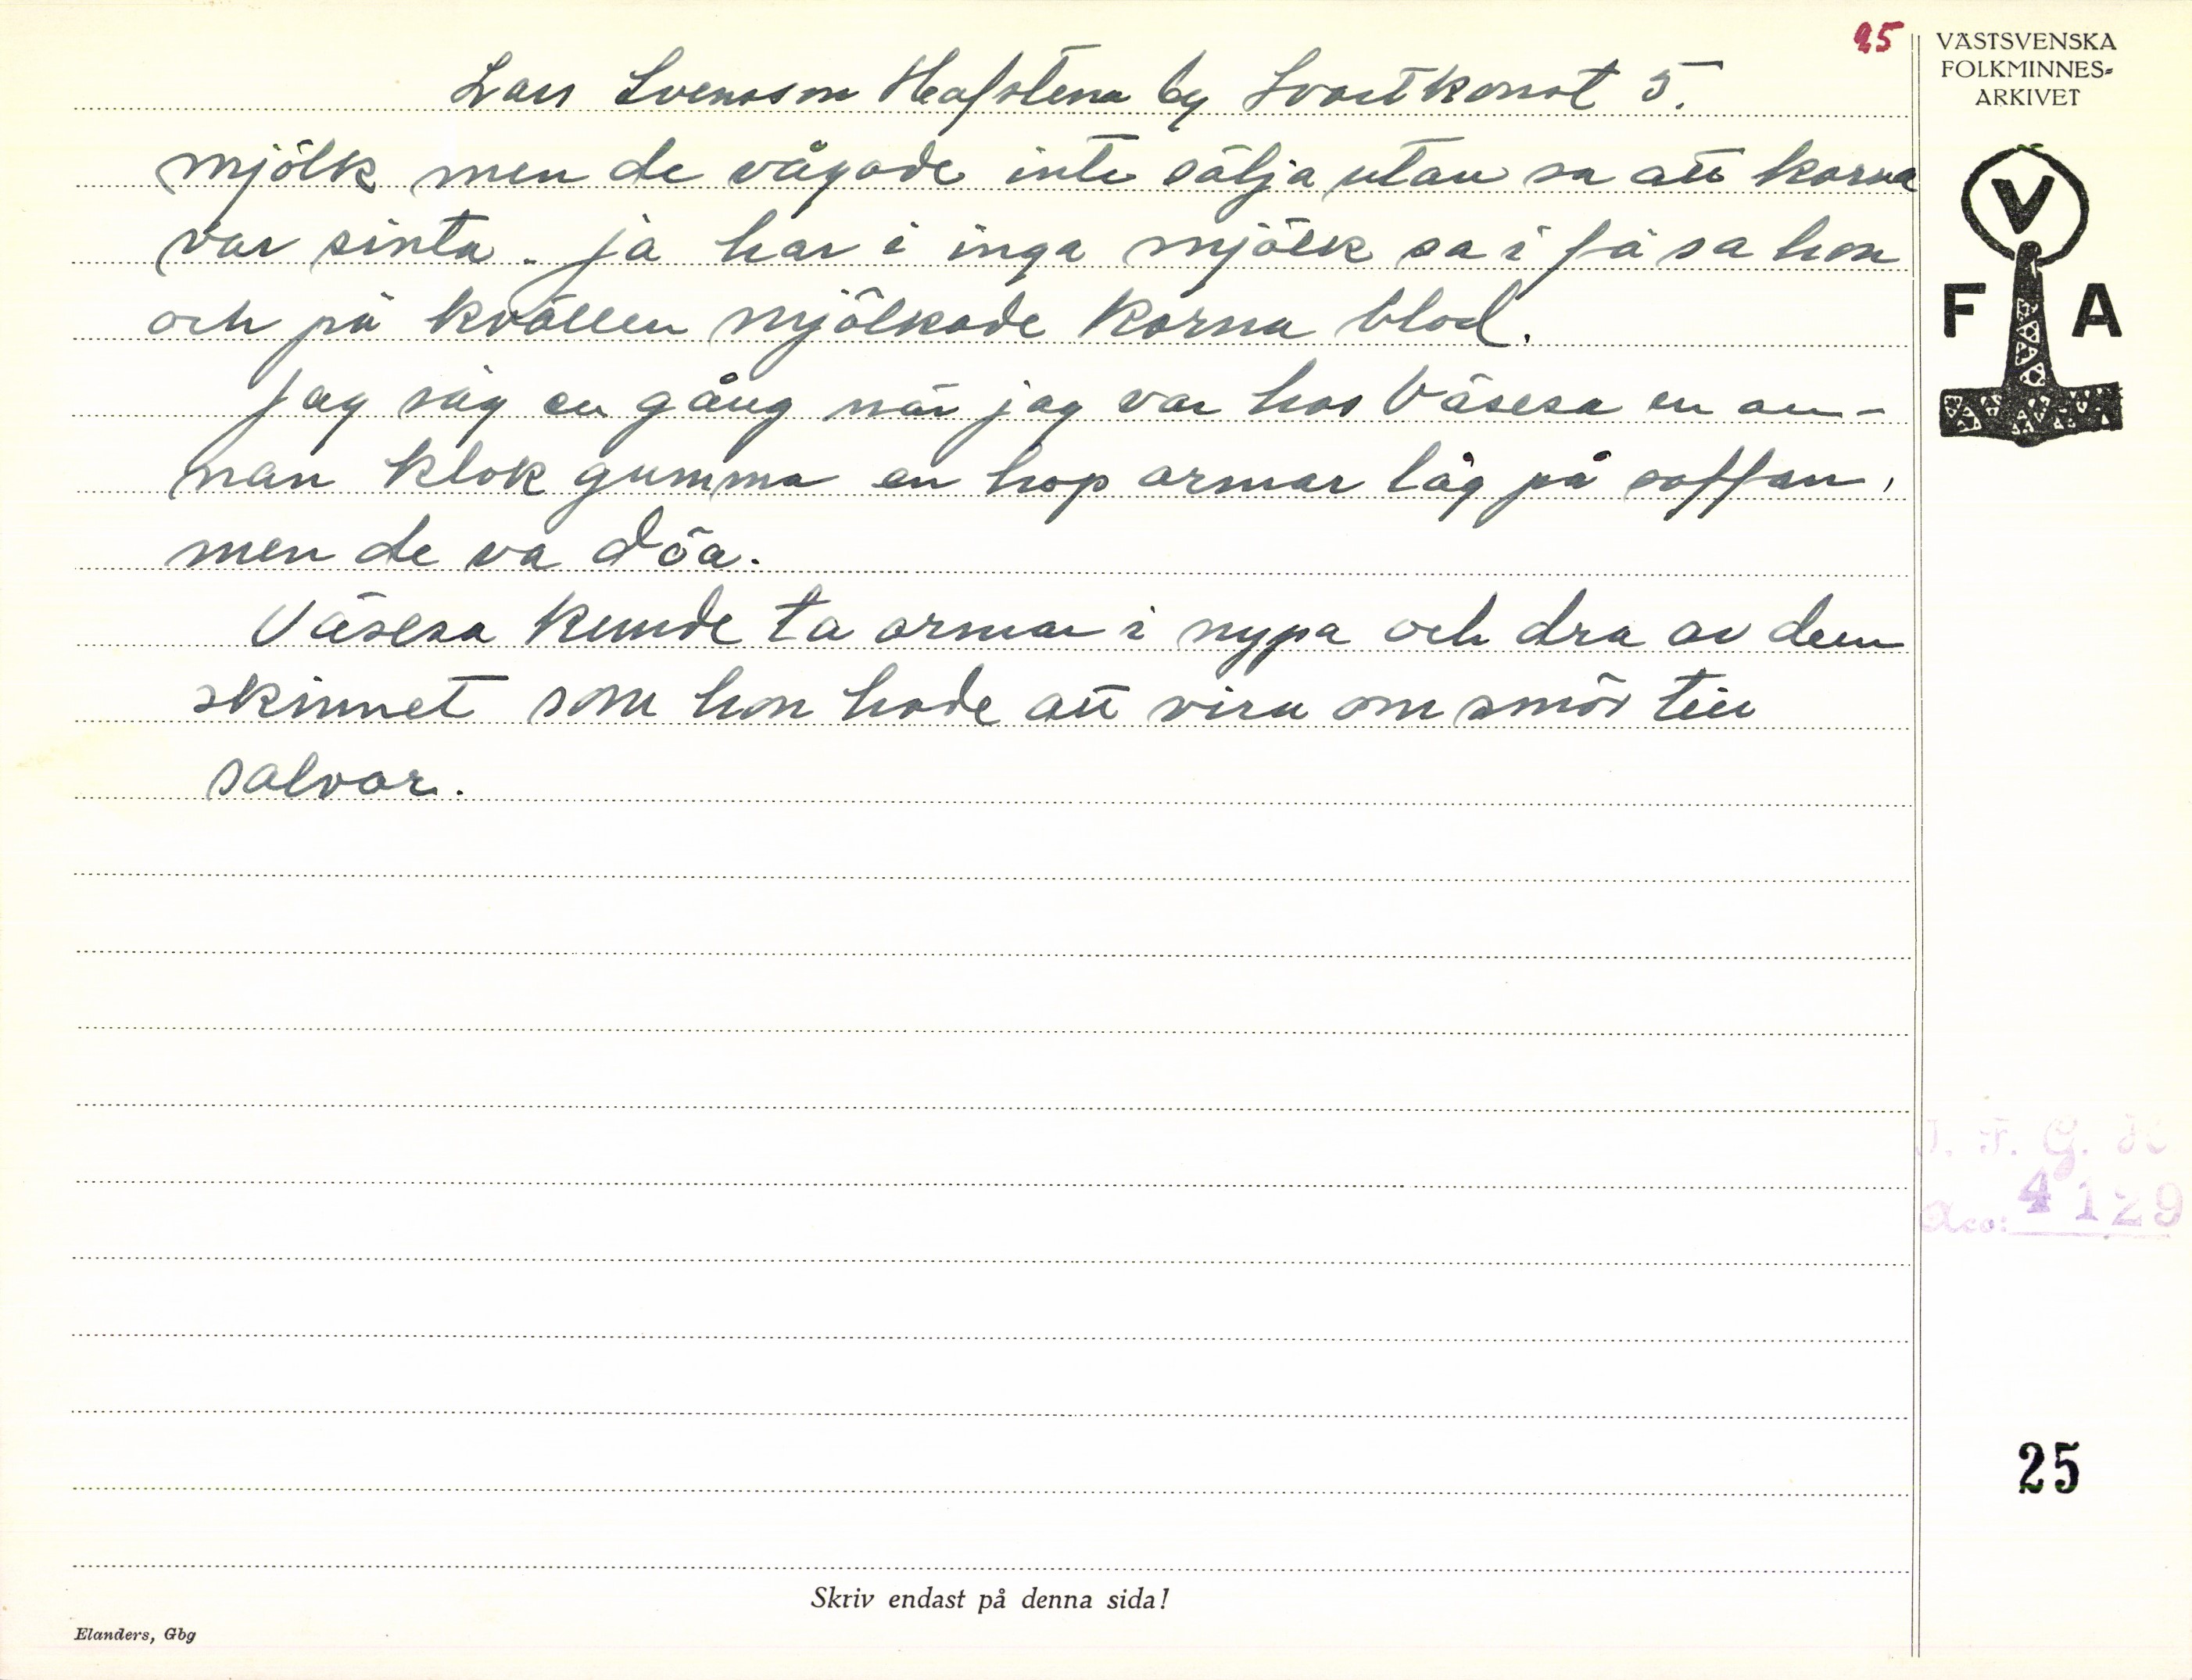 25
VÄSTSVENSKA
FOLKMINNES-
ARKIVET
V
F A
Lars Svensson Hafstena by Svartkonst 5.
mjölk men de vågade inte sälja utan sa att korna
var sinta. ja har i inga mjölk sa i få sa hon
och på kvällen mjölkade korna blod.
Jag såg en gång när jag var hos Väsesa en an-
nan klok gumma en hop ormar låg på soffan,
men de va döa.
Väsesa kunde ta ormar i nypa och dra av dem
skinnet som hon hade att vira om smör till
salvor.
4129
25
Skriv endast på denna sida!
Elanders, Gbg